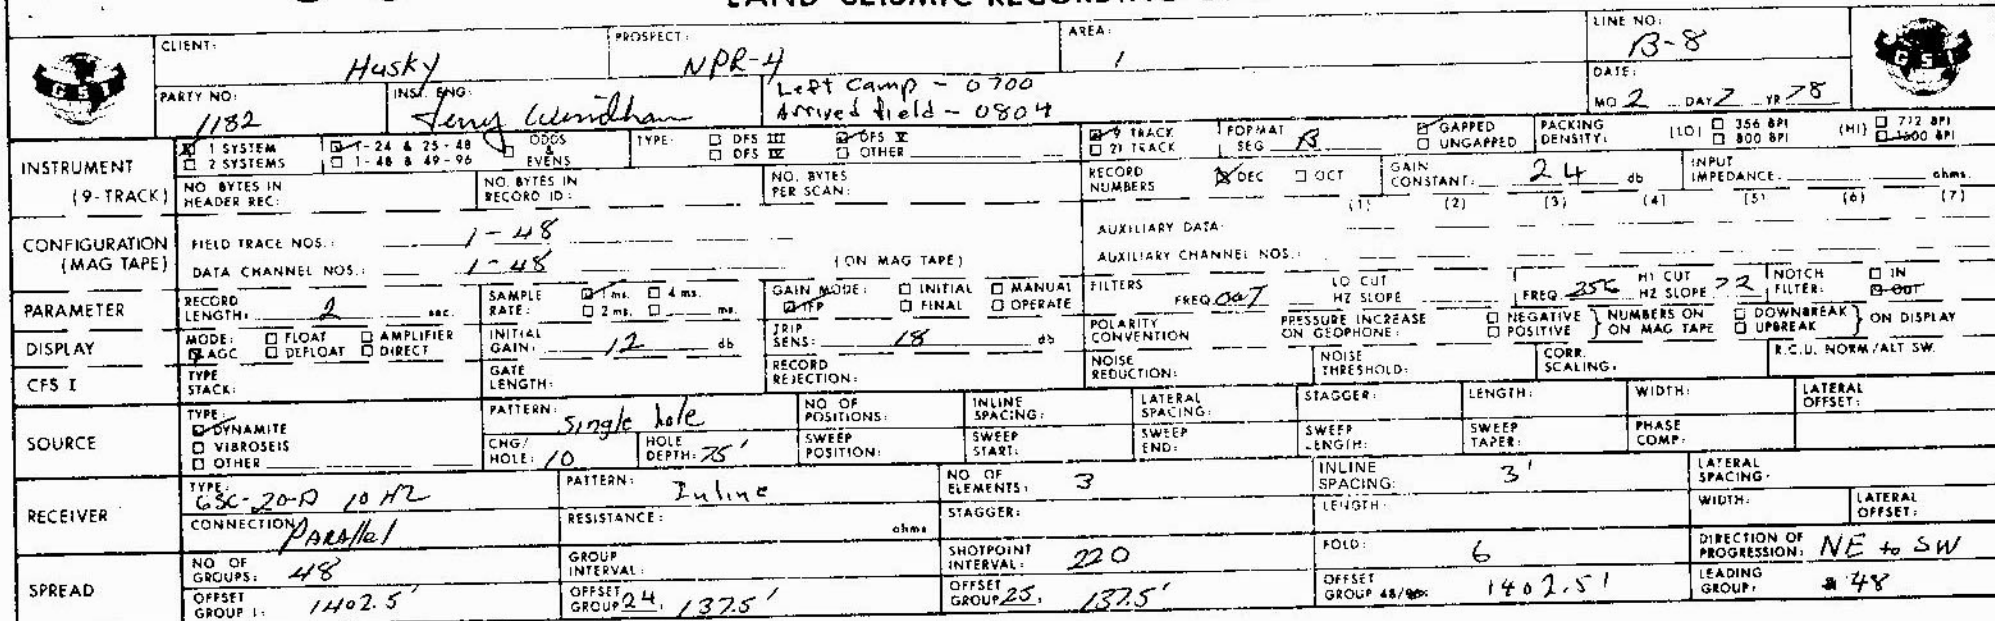 LAND SEISMIC RECORDING
GSI
CLIENT: Husky PROSPECT: NPR-4 AREA: 1 LINE NO: B-8
PARTY NO: 1182 INST. ENG: Left Camp - 0700
Arrived field - 0804 DATE: MO 2 DAY 7 YR 78
GSI
INSTRUMENT (9-TRACK)
1 SYSTEM 1-24 & 25-48 ODDS & EVENS TYPE: DFS III DFS V 9 TRACK FORMAT SEG B GAPPED PACKING DENSITY: (LO) 356 BPI (HI) 712 BPI
2 SYSTEMS 1-48 & 49-96 DFS IV OTHER 21 TRACK UNGAPPED 800 BPI 1600 BPI
NO. BYTES IN HEADER REC: NO. BYTES IN RECORD ID: NO. BYTES PER SCAN: RECORD NUMBERS DEC OCT GAIN CONSTANT: 24 db INPUT IMPEDANCE: ohms.
(1) (2) (3) (4) (5) (6) (7)
CONFIGURATION (MAG TAPE)
FIELD TRACE NOS.: 1-48 AUXILIARY DATA:
DATA CHANNEL NOS.: 1-48 (ON MAG TAPE) AUXILIARY CHANNEL NOS.:
PARAMETER RECORD LENGTH: 2 sec. SAMPLE RATE: 1 ms. 4 ms. 2 ms. ms. GAIN MODE: INITIAL MANUAL IFP FINAL OPERATE FILTERS FREQ OUT LO CUT HZ SLOPE FREQ HI CUT HZ SLOPE 72 NOTCH FILTER: IN OUT
DISPLAY MODE: FLOAT AMPLIFIER AGC DEFLOAT DIRECT INITIAL GAIN: 12 db TRIP SENS: 18 db POLARITY CONVENTION PRESSURE INCREASE ON GEOPHONE: NEGATIVE POSITIVE NUMBERS ON ON MAG TAPE DOWNBREAK UPBREAK ON DISPLAY
CFS I TYPE STACK: GATE LENGTH: RECORD REJECTION: NOISE REDUCTION: NOISE THRESHOLD: CORR. SCALING: R.C.U. NORM/ALT SW.
SOURCE TYPE: DYNAMITE VIBROSEIS OTHER PATTERN: Single hole NO OF POSITIONS: INLINE SPACING: LATERAL SPACING: STAGGER: LENGTH: WIDTH: LATERAL OFFSET:
CHG/HOLE: 10 HOLE DEPTH: 75' SWEEP POSITION: SWEEP START: SWEEP END: SWEEP LENGTH: SWEEP TAPER: PHASE COMP:
RECEIVER TYPE: GSC-20-D 10 HZ PATTERN: Inline NO OF ELEMENTS: 3 INLINE SPACING: 3' LATERAL SPACING:
CONNECTION Parallel RESISTANCE: ohms STAGGER: LENGTH: WIDTH: LATERAL OFFSET:
SPREAD NO OF GROUPS: 48 GROUP INTERVAL: SHOTPOINT INTERVAL: 220 FOLD: 6 DIRECTION OF PROGRESSION: NE to SW
OFFSET GROUP 1: 1402.5' OFFSET GROUP 24, 137.5' OFFSET GROUP 25, 137.5' OFFSET GROUP 48/96: 1402.5' LEADING GROUP: 48